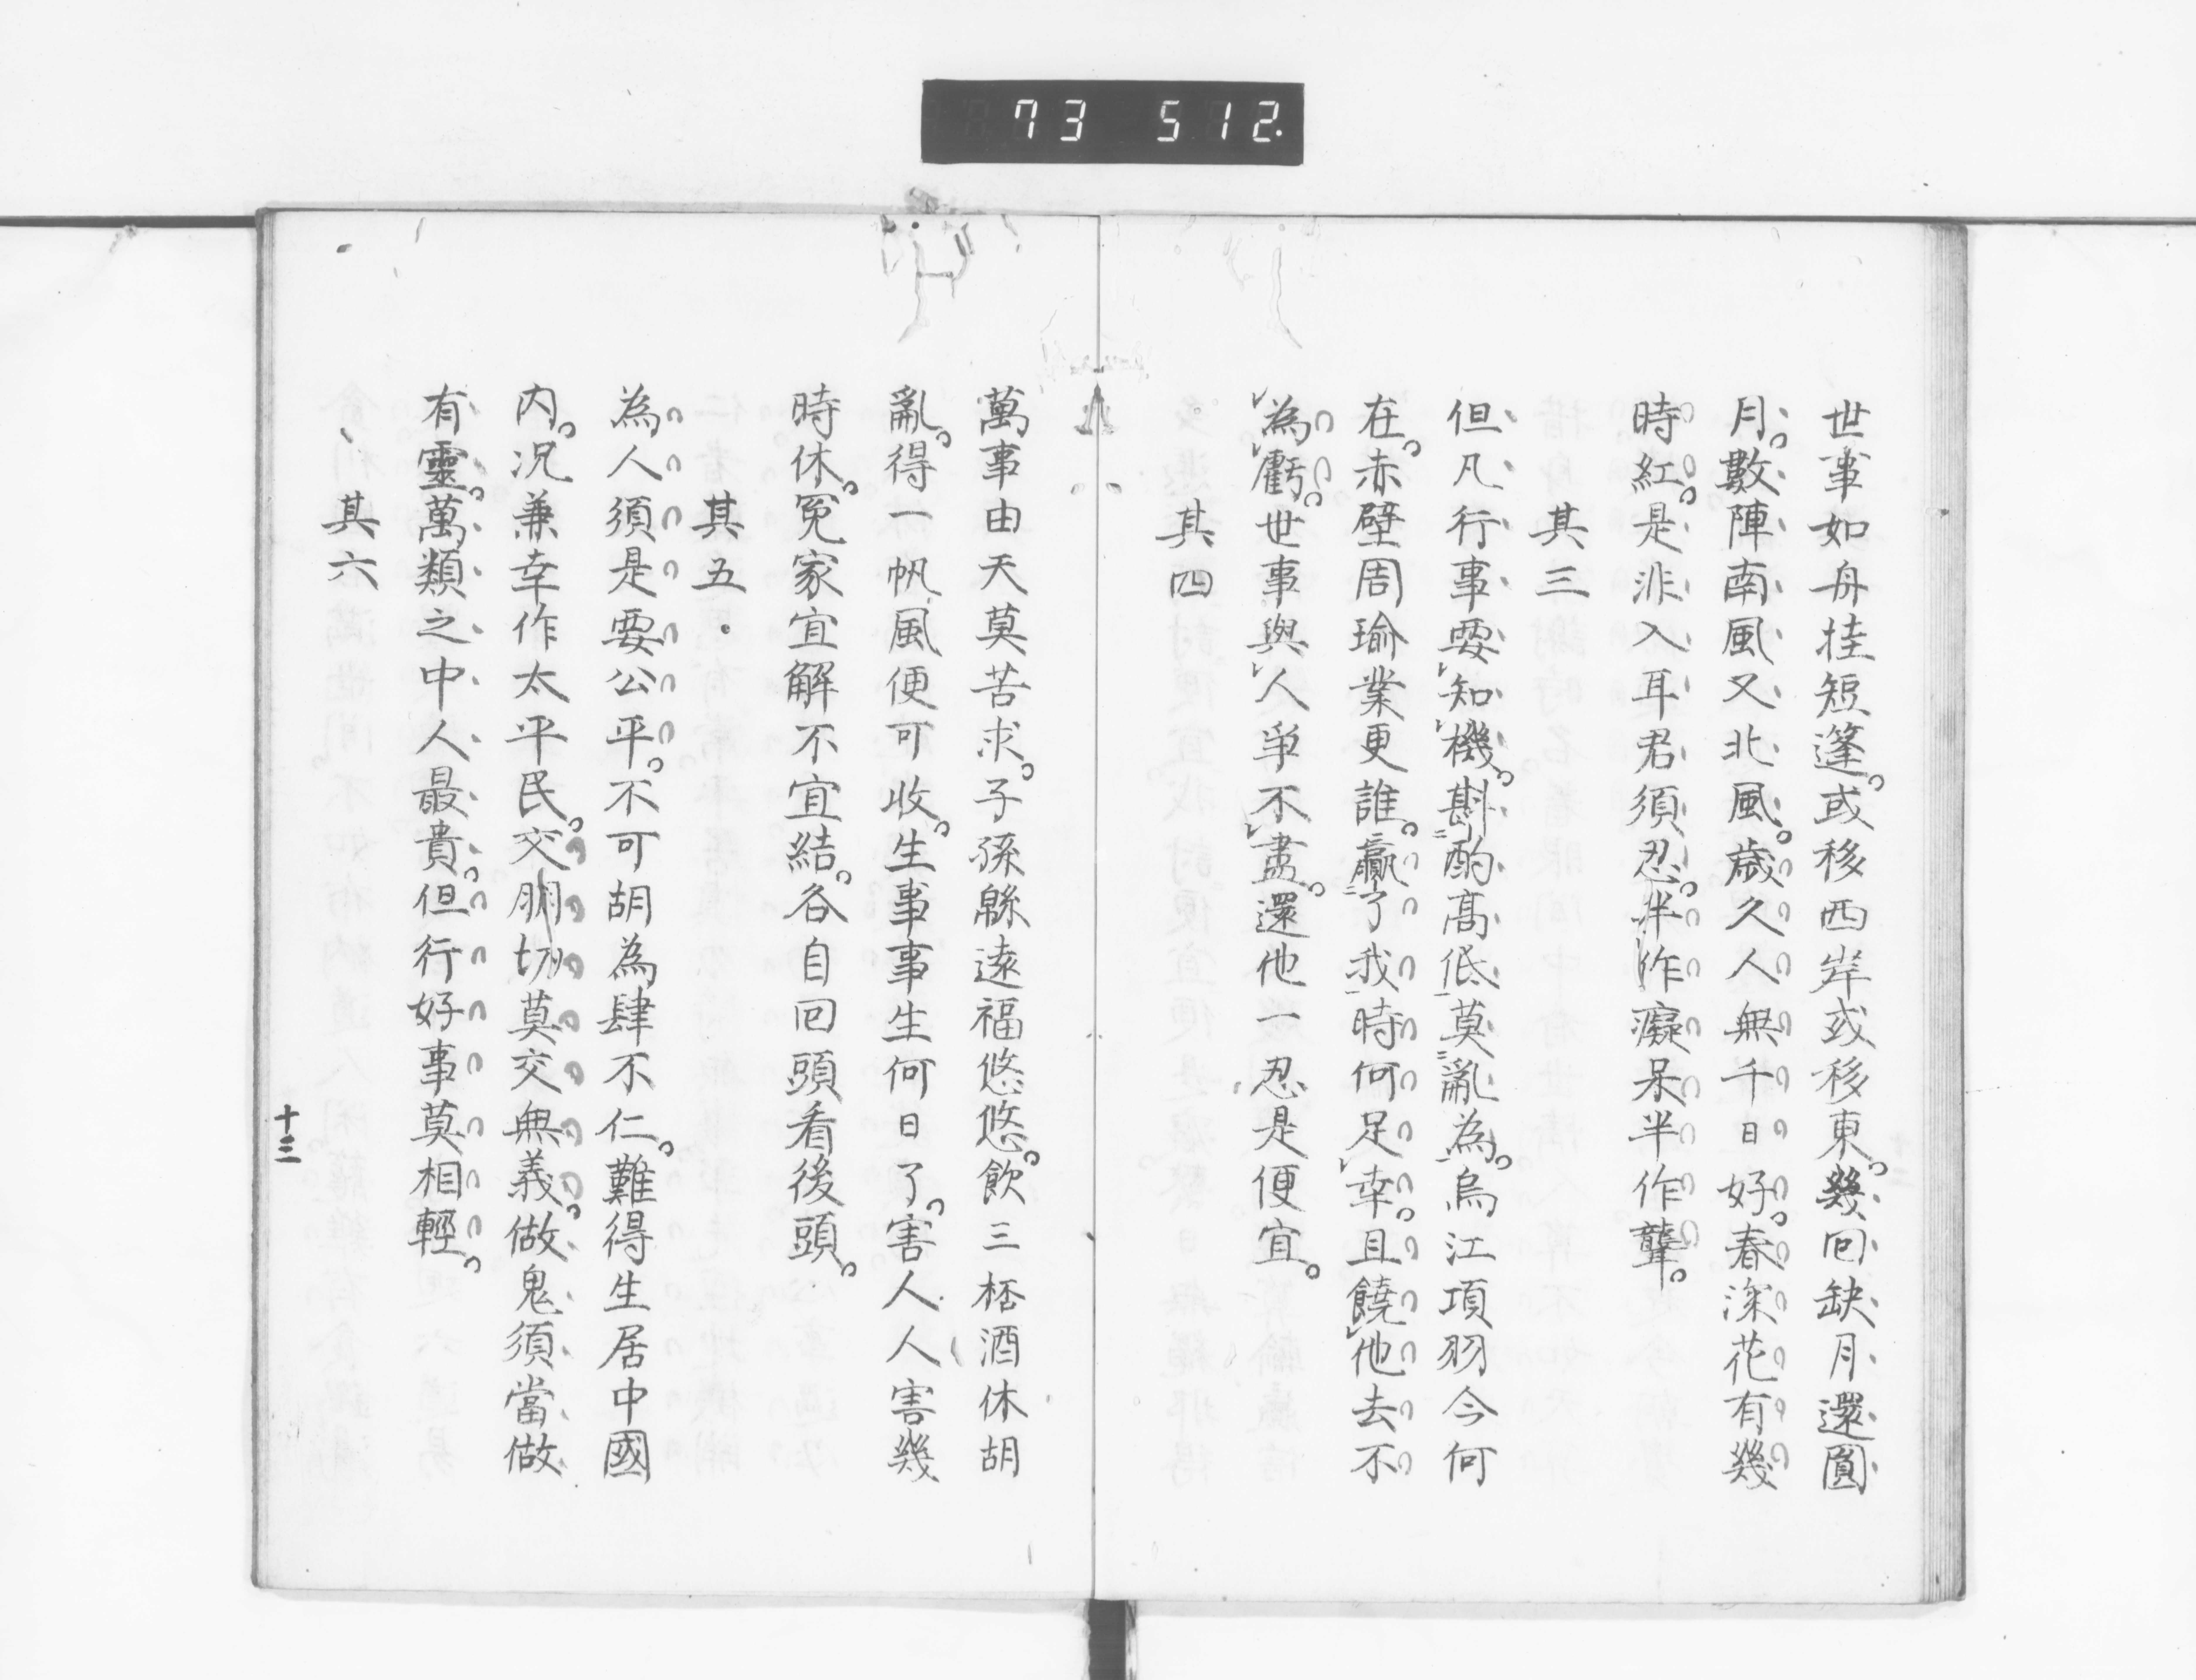 73 512.
世事如舟挂短篷。或移西岸或移東。幾回缺月還圓
月。數陣南風又北風。歳久人無千日好。春深花有幾
時紅。是非入耳君須忍。半作癡呆半作聾。
其三
但凡行事要知機。斟酌高低莫亂為。烏江項羽今何
在。赤壁周瑜業更誰。贏了我時何足幸。且饒他去不
為虧。世事與人爭不盡。還他一忍是便宜。
其四
萬事由天莫苦求。子孫緜遠福悠悠。飲三桮酒休胡
亂。得一帆風便可收。生事事生何日了。害人人害幾
時休。冤家宜解不宜結。各自回頭看後頭。
其五
為人須是要公平。不可胡為肆不仁。難得生居中國
内。況兼幸作太平民。交朋切莫交無義。做鬼須當做
有靈。萬類之中人最貴。但行好事莫相輕。
其六
十三